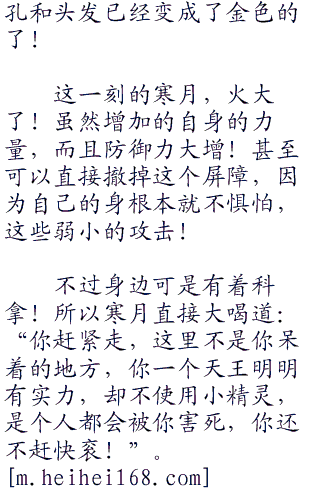 孔和头发已经变成了金色的
了！
这一刻的寒月，火大
了！虽然增加的自身的力
量，而且防御力大增！甚至
可以直接撤掉这个屏障，因
为自己的身根本就不惧怕，
这些弱小的攻击！
不过身边可是有着科
拿！所以寒月直接大喝道：
“你赶紧走，这里不是你呆
着的地方，你一个天王明明
有实力，却不使用小精灵，
是个人都会被你害死，你还
不赶快衮！”。
[m.heihei168.com]